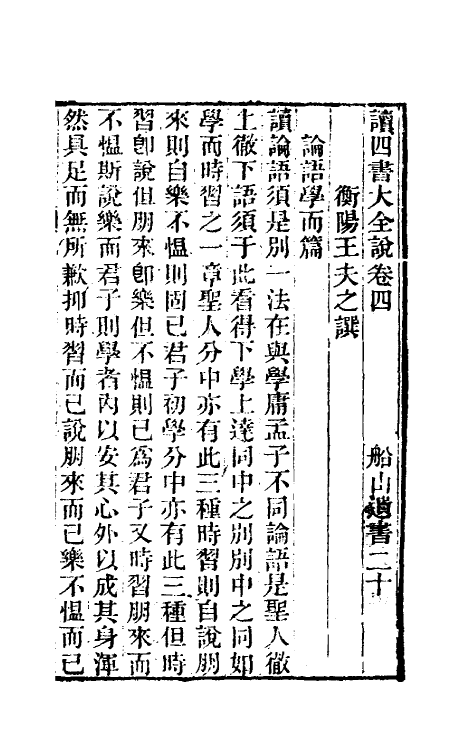 讀四書大全說卷四　船山遺書二十
衡陽王夫之譔
論語學而篇
讀論語須是別一法在與學庸孟子不同論語是聖人徹
上徹下語須于此看得下學上達同中之別別中之同如
學而時習之一章聖人分中亦有此三種時習則自說朋
來則自樂不慍則固已君子初學分中亦有此三種但時
習卽說但朋來卽樂但不慍則已爲君子又時習朋來而
不慍斯說樂而君子則學者內以安其心外以成其身渾
然具足而無所歉抑時習而已說朋來而已樂不慍而已